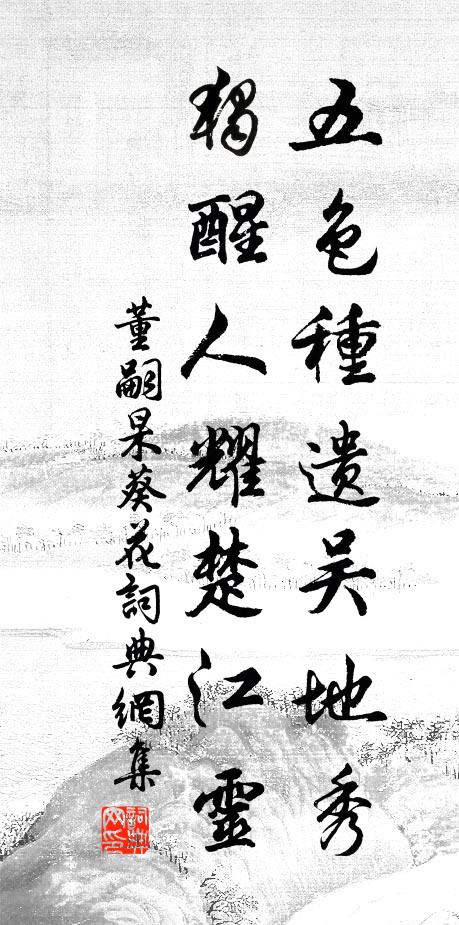 五色種遺吴地秀
獨醒人耀楚江靈
董嗣杲葵花詞典網集